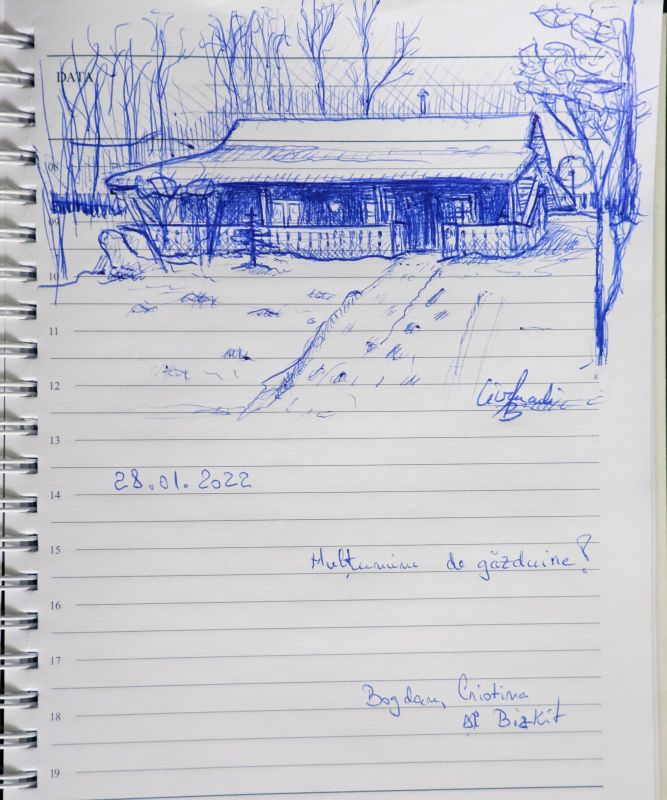 DATA
08
09
10
11
12
13
28.01.2022
14
Mulțumim de găzduire!
15
16
17
Bogdan, Cristina
și Bizkit
18
19